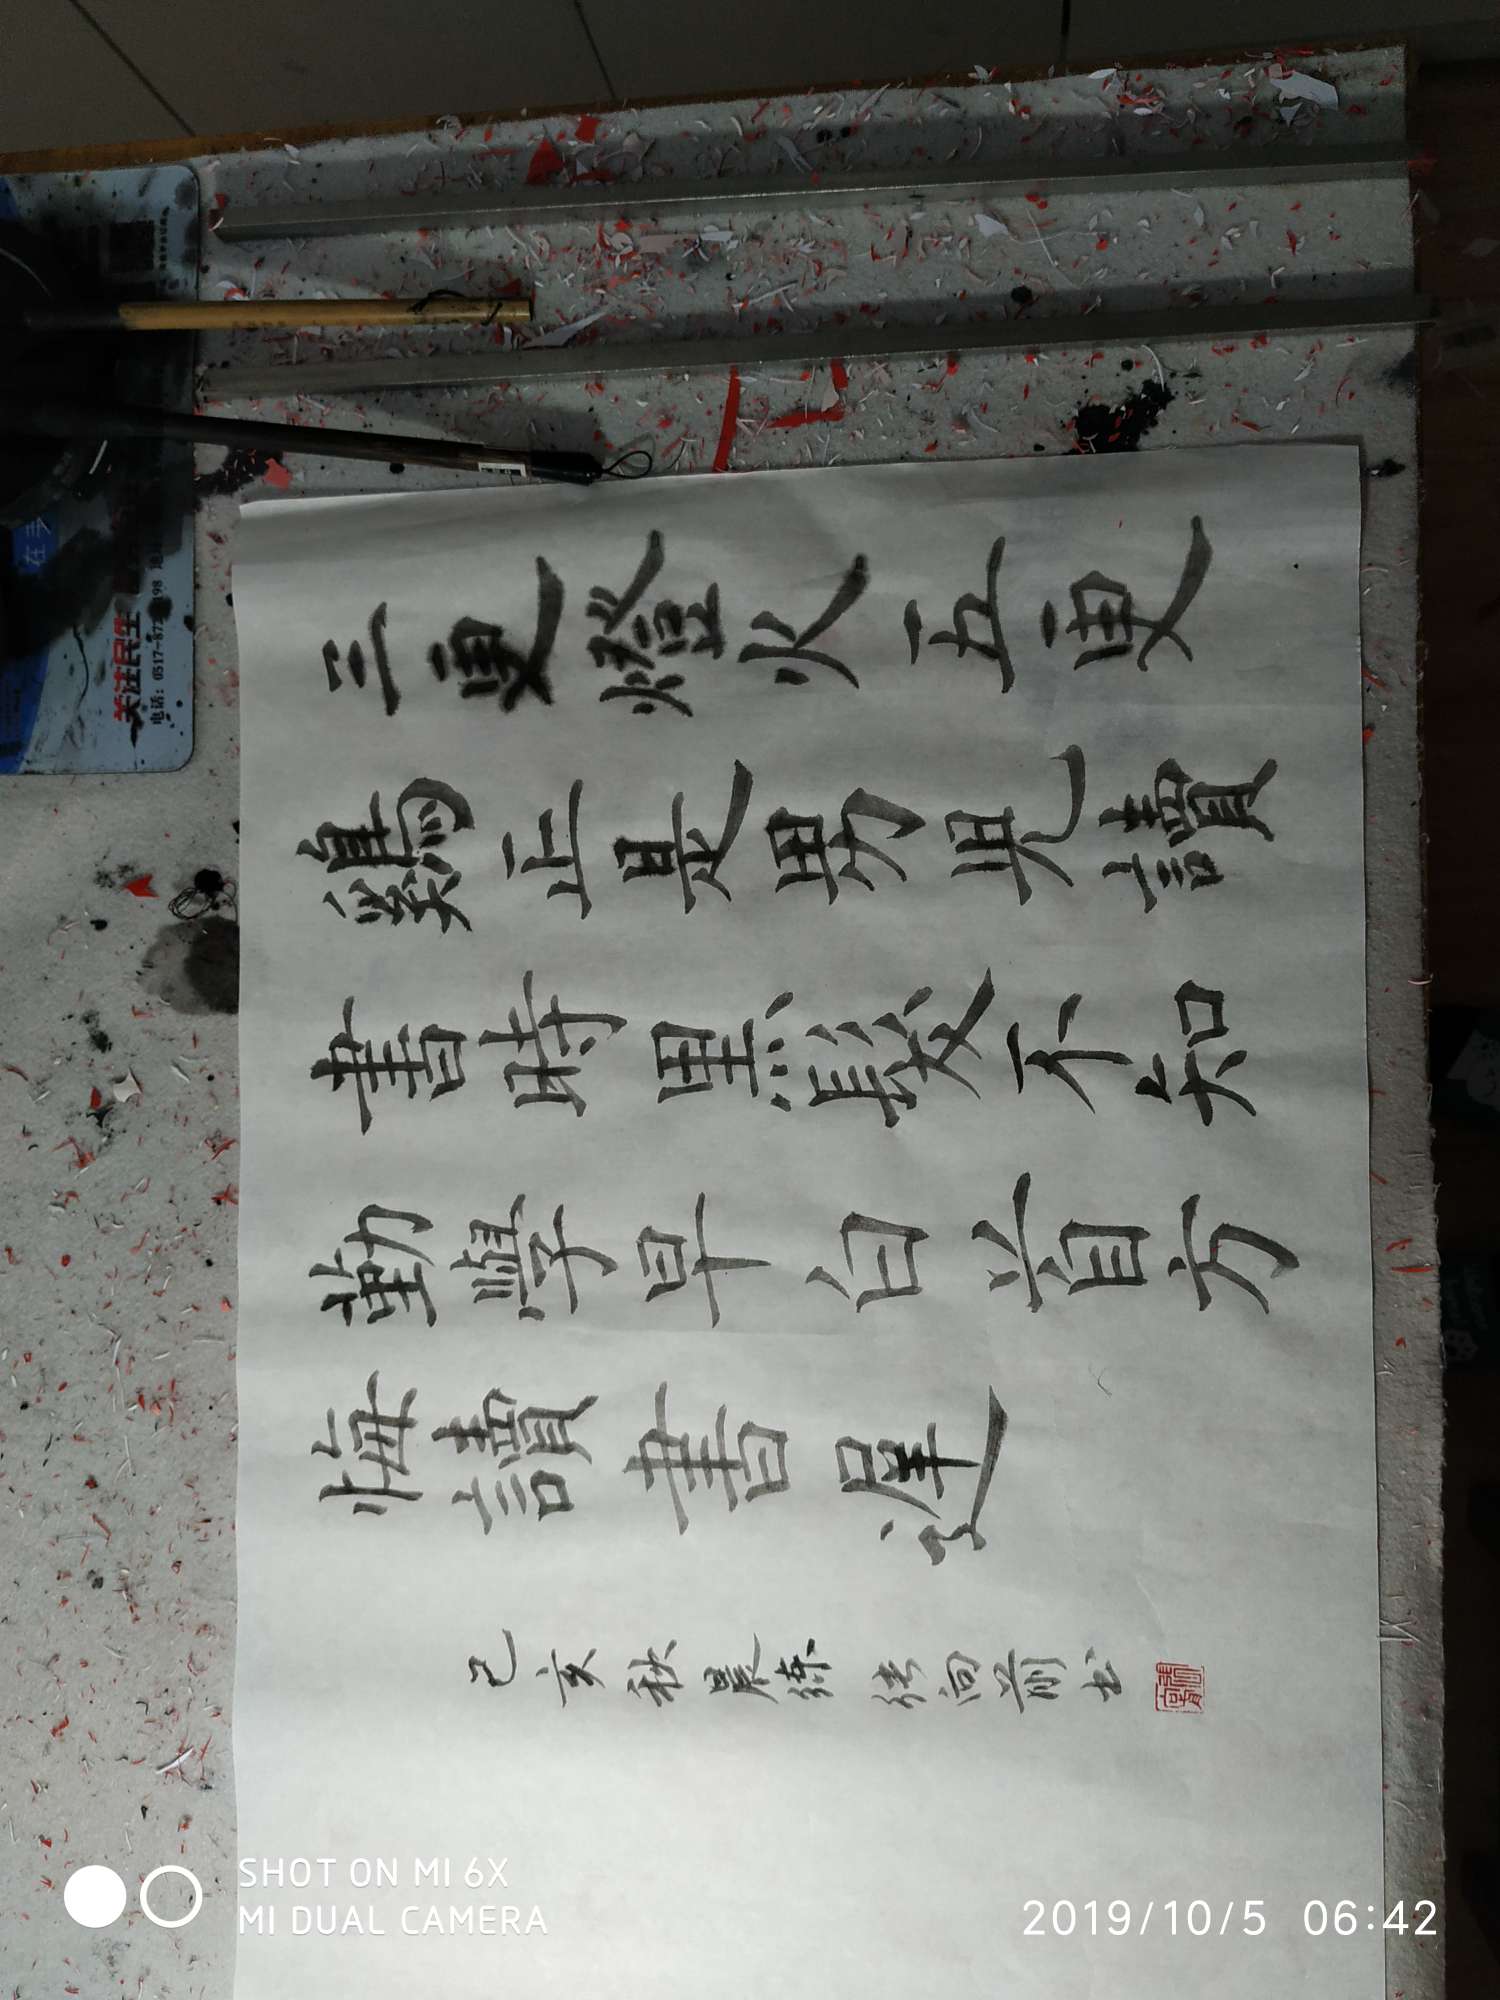 三更燈火五更
鷄正是男兒讀
書時黑髮不知
勤學早白首方
悔讀書遲
己亥秋晨練 張向前书
关注民生
电话: 0517-87
198
在
SHOT ON MI 6X
MI DUAL CAMERA
2019/10/5 06:42